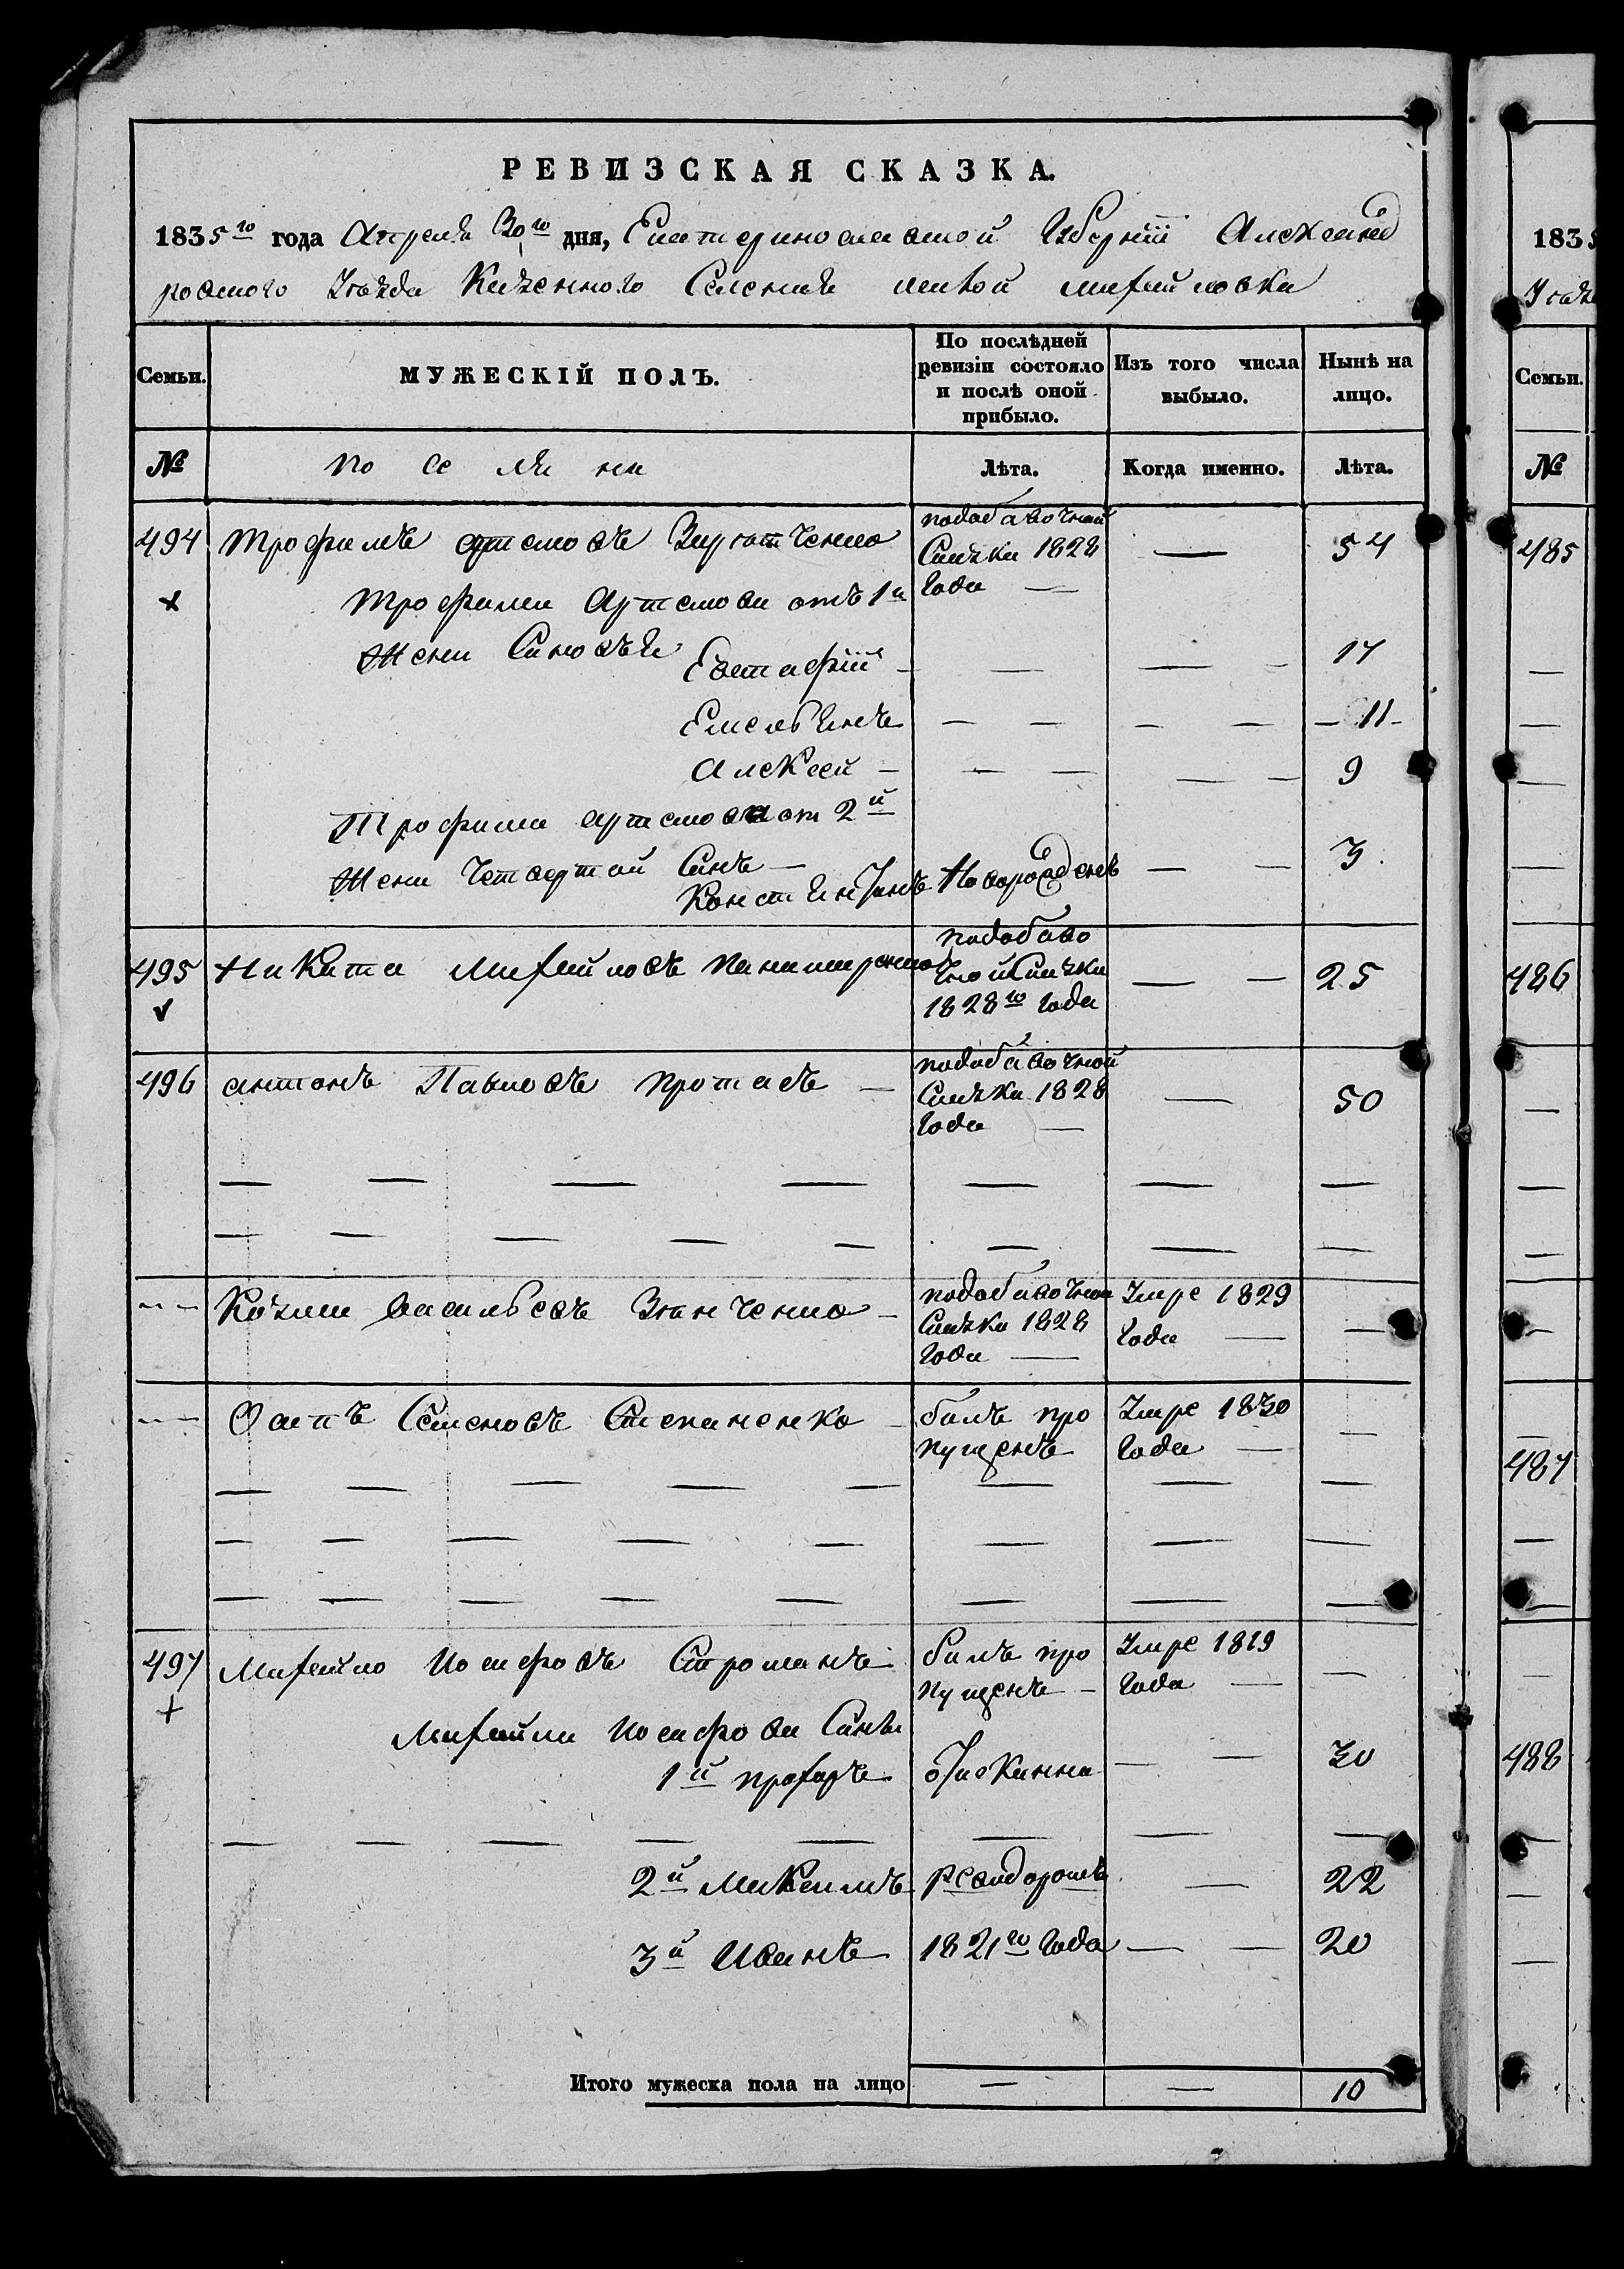 РЕВИЗСКАЯ СКАЗКА.
1835го года Апреля 30го дня, Екатериносласкои Губерніи Александ
роского Уѣзда Казенного Селения михайловка
Семьи.
МУЖЕСКІЙ ПОЛЪ.
По послѣдней ревизіи состояло и послѣ оной прибыло.
Изъ того числа выбыло.
Нынѣ на лицо.
№
по се ля не
Лѣта.
Когда именно.
Лѣта.
494 Трофимъ артемовъ подобавочной Скаски 1828 Года — — 54
Трофима Артемова отъ 1й
жени Синовья Евстафій — — — 17
Емельянъ — — — — — 11 —
Алексей — — — — — 9
Трофима артемова от 2й
жени Четвертой Синъ —
Константинъ Новорожденъ — — 3
495 Никита Михайловъ подобаво чной Скаски 1828го Года — — 25
496 антонъ Павловъ Протасъ — подобавочной Скаски 1828 Года — — 50
— — Козма васильевъ — подобавочной Скаски 1828 Года — Умре 1829 Года — —
— — Осипъ Семеновъ Степаненко — билъ про пущенъ Умре 1830 Года — —
497 Михайло Иосифовъ Строманъ билъ про пущенъ — Умре 1819 Года — —
Михайли Иосифова Сини
1й прохоръ — — 30
2й Максимъ — 22
3й Иванъ 1821го Года — — 20
Итого мужеска пола на лицо — — 10
1835
Уѣзда
Семьи.
№
485
486
487
488